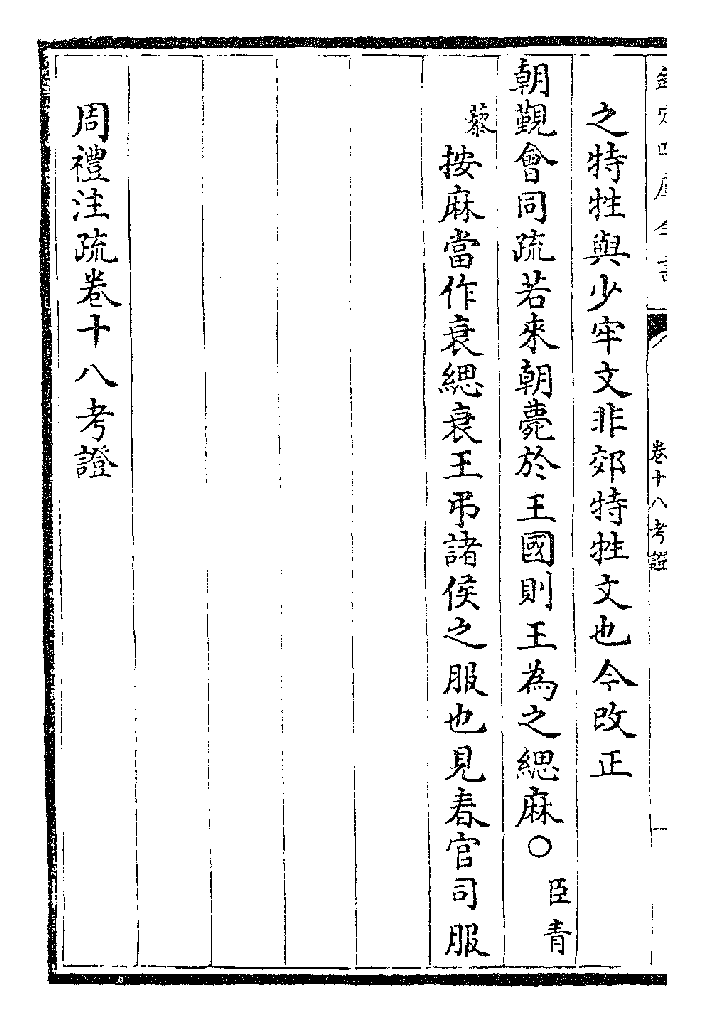 欽定四庫全書
卷十八考證
之特牲與少牢文非郊特牲文也今改正
朝覲會同疏若來朝薨於王國則王為之緦麻○臣青
藜按麻當作衰緦衰王弔諸侯之服也見春官司服
周禮注疏卷十八考證